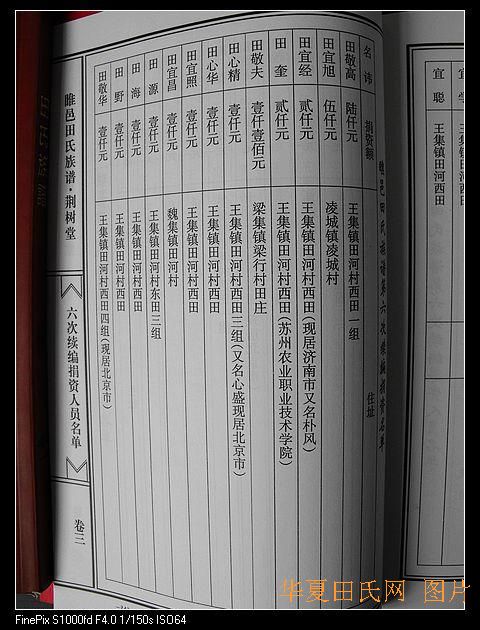 王集镇田河西田
宜聪 王集镇田河西田
睢邑田氏族谱第六次续编捐资名单
名讳 捐资额 住址
田敬高 陆仟元 王集镇田河村西田一组
田宜旭 伍仟元 凌城镇凌城村
田宜经 贰仟元 王集镇田河村西田(现居济南市又名朴风)
田奎 贰仟元 王集镇田河村西田(苏州农业职业技术学院)
田敬夫 壹仟壹佰元 梁集镇梁行村田庄
田心精 壹仟元 王集镇田河村西田三组(又名心盛现居北京市)
田心华 壹仟元 王集镇田河村西田
田宜照 壹仟元 王集镇田河村西田
田宜昌 壹仟元 魏集镇田河村
田源 壹仟元 王集镇田河村东田三组
田海 壹仟元 王集镇田河村西田
田野 壹仟元 王集镇田河村西田
田敬华 壹仟元 王集镇田河村西田四组(现居北京市)
睢邑田氏族谱·荆树堂 六次续编捐资人员名单 卷三
华夏田氏网 图片
FinePix S1000fd F4.0 1/150s ISO64